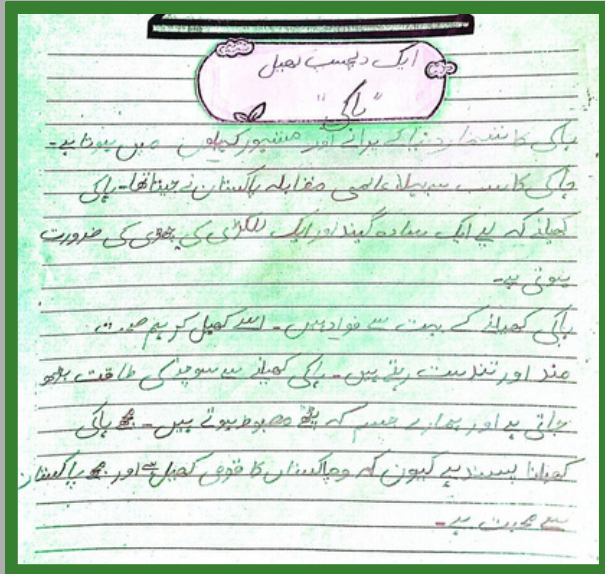 ایک دلچسپ کھیل
"ہاکی"
ہاکی کا شمار دنیا کے پرانے اور مشہور کھیلوں میں ہوتا ہے۔
ہاکی کا سب سے پہلا عالمی مقابلہ پاکستان نے جیتا تھا۔ ہاکی
کھیلنے کہ لیے ایک سادہ گیند اور ایک لکڑی کی چھڑی کی ضرورت
ہوتی ہے۔
ہاکی کھیلنے کے بہت سے فوائد ہیں۔ اسے کھیل کر ہم صحت
مند اور تندرست رہتے ہیں۔ ہاکی کھیلنے سے سوچنے کی طاقت بڑھ
جاتی ہے اور ہمارے جسم کہ پٹھے مضبوط ہوتے ہیں۔ مجھے ہاکی
کھیلنا پسند ہے کیوں کہ وہ پاکستان کا قومی کھیل ہے اور مجھے پاکستان
سے محبت ہے۔